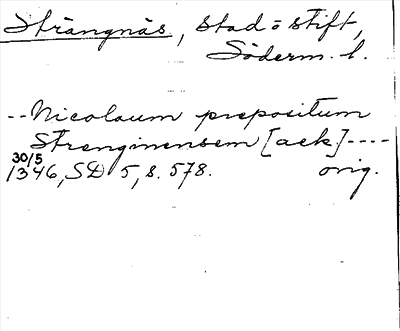 Strängnäs, stad o stift,
Söderm. l.
-- Nicolaum prepositum
Strenginensem [ack] ----
30/5
1346, SD 5, s. 578. orig.